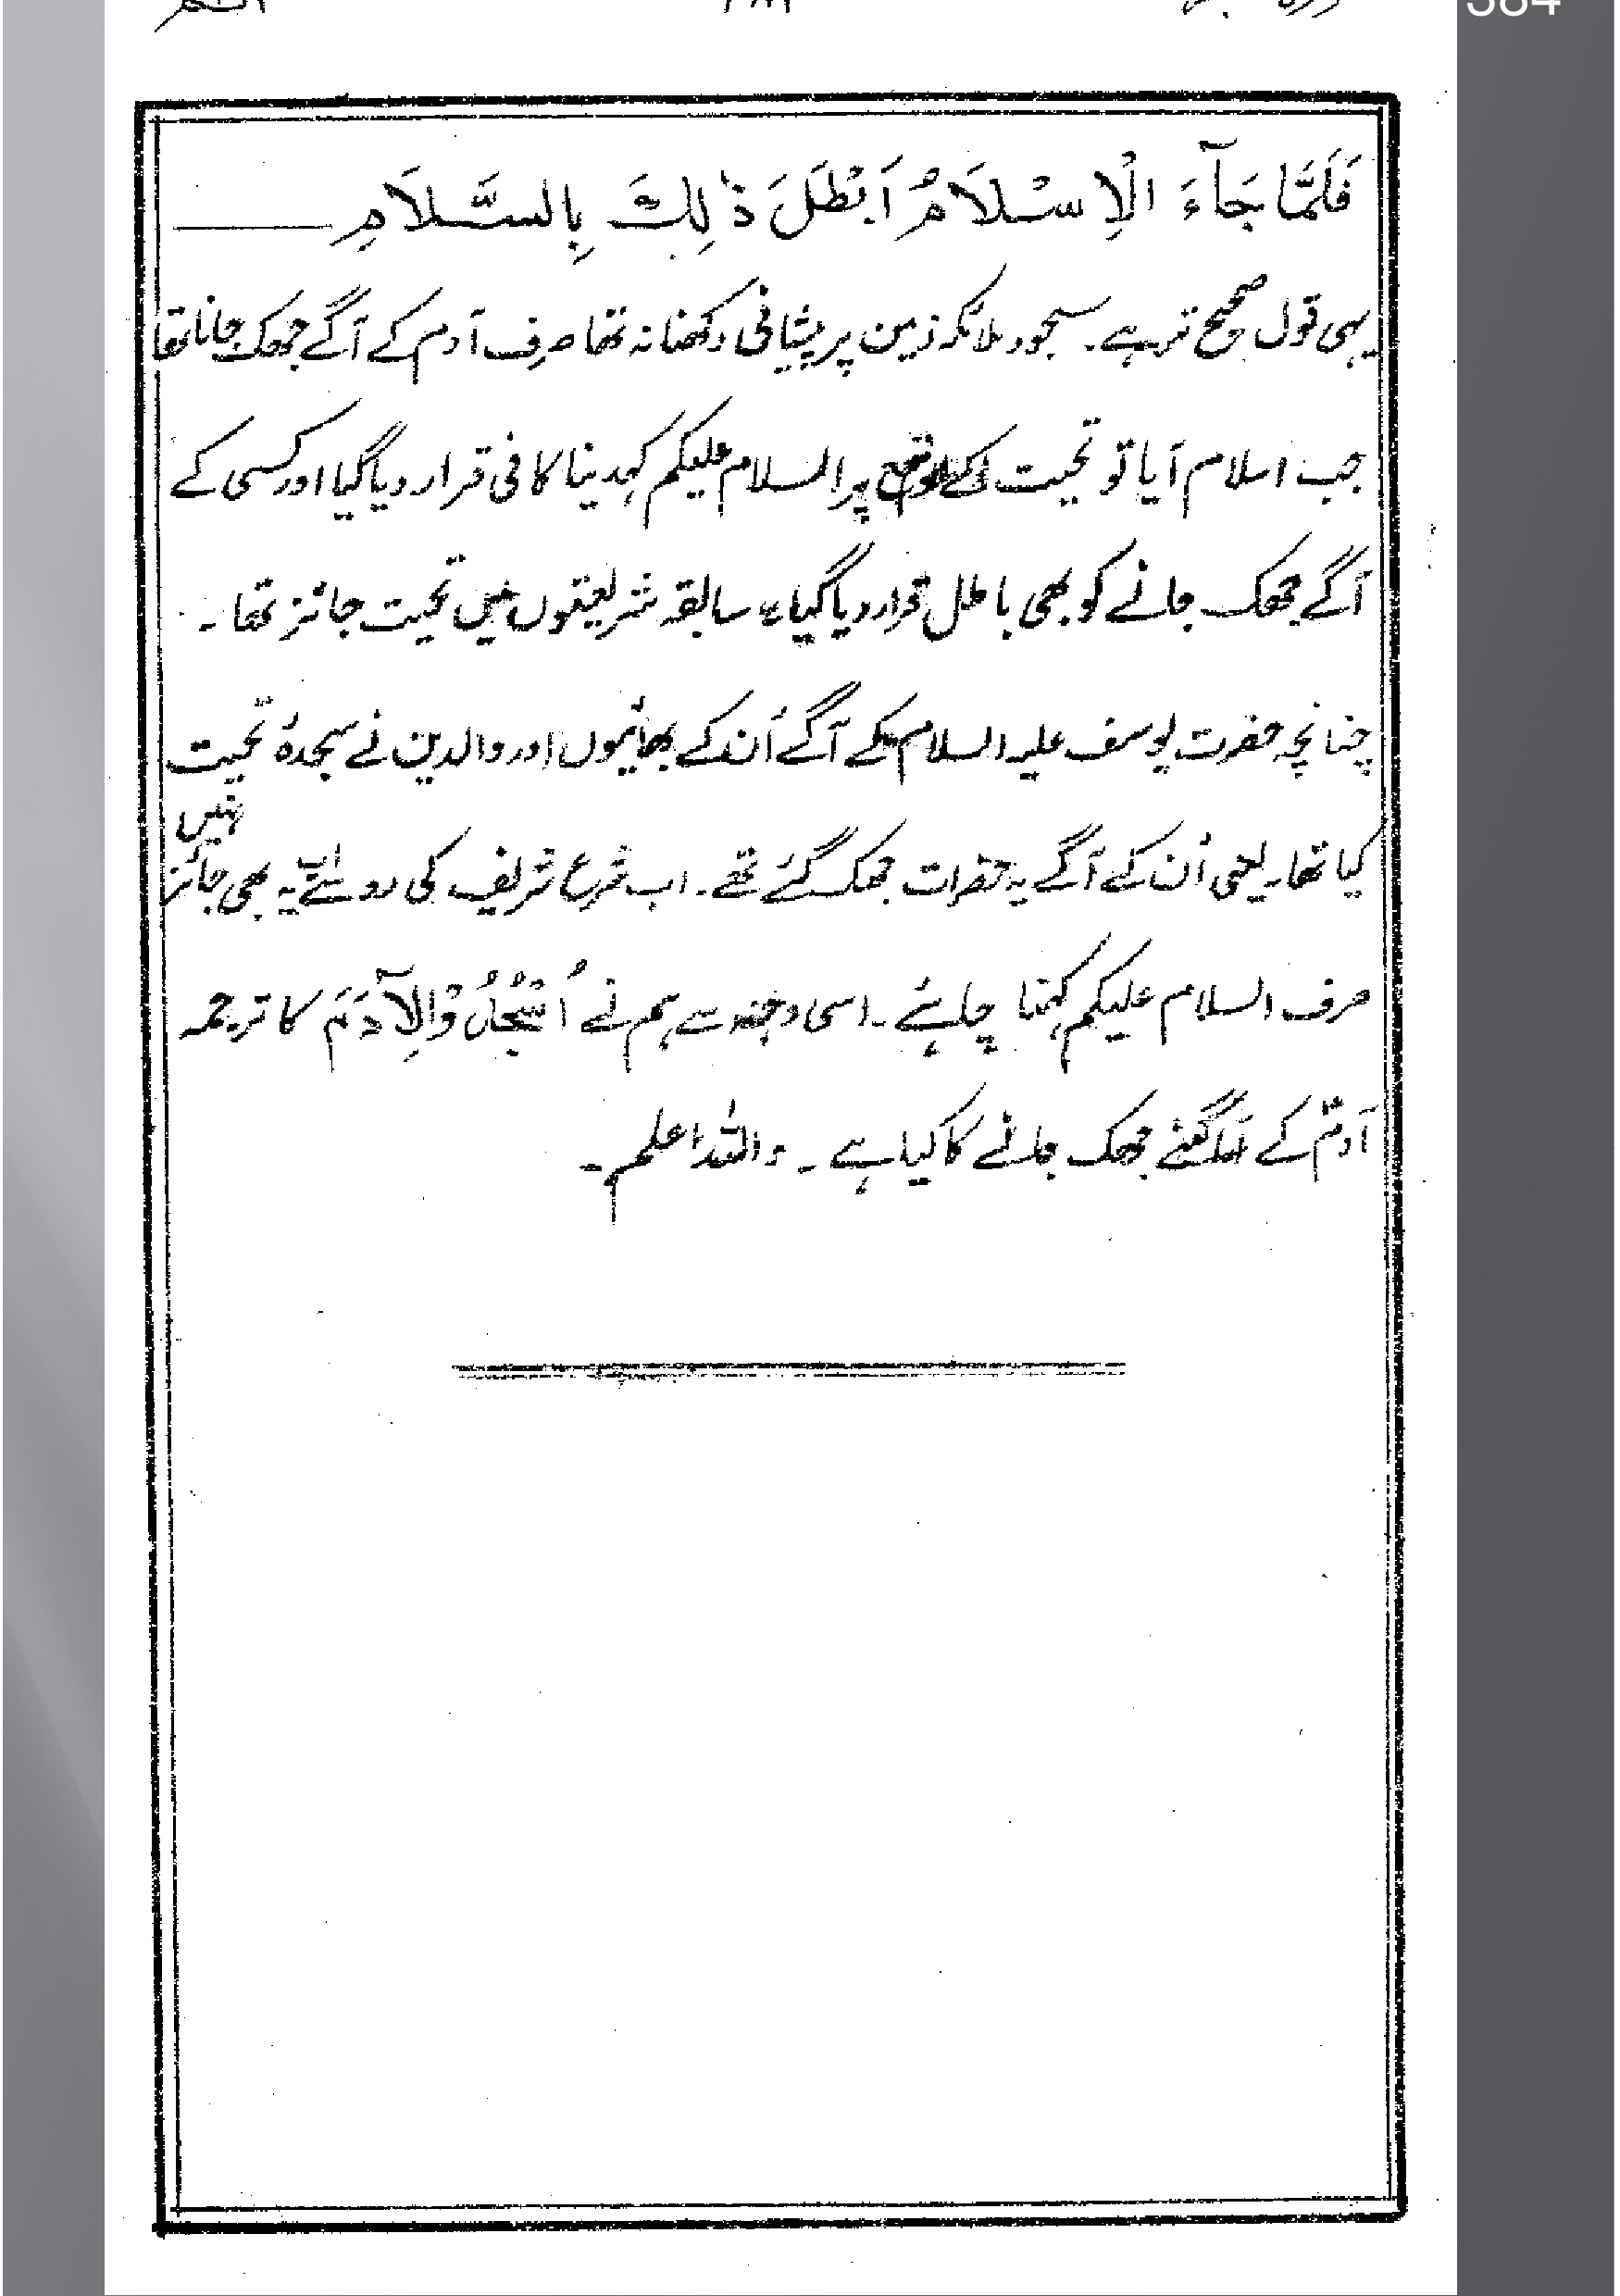 فَلَمَّا جَآءَ الْاِسْلَامُ اَبْطَلَ ذٰلِكَ بِالسَّلَامِ
یہی قول صحیح تر ہے۔ سجود ملائکہ زمین پر پیشانی رکھنا نہ تھا صرف آدم کے آگے جھک جانا تھا
جب اسلام آیا تو تحیت کے موقع پر السلام علیکم کہدینا کافی قرار دیا گیا اور کسی کے
آگے جھک جانے کو بھی باطل قرار دیا گیا، سابقہ شریعتوں میں تحیت جائز تھا۔
چنانچہ حضرت یوسف علیہ السلام کے آگے اُن کے بھائیوں اور والدین نے سجدۂ تحیت
کیا تھا۔ یعنی اُن کے آگے یہ حضرات جھک گئے تھے۔ اب شرع شریف کی رو سے یہ بھی جائز نہیں
صرف السلام علیکم کہنا چاہئے۔ اسی وجہ سے ہم نے اُسْجُدُوْا لِاٰدَمَ کا ترجمہ
آدمؑ کے آگے جھک جانے کا کیا ہے۔ واللہ اعلم۔